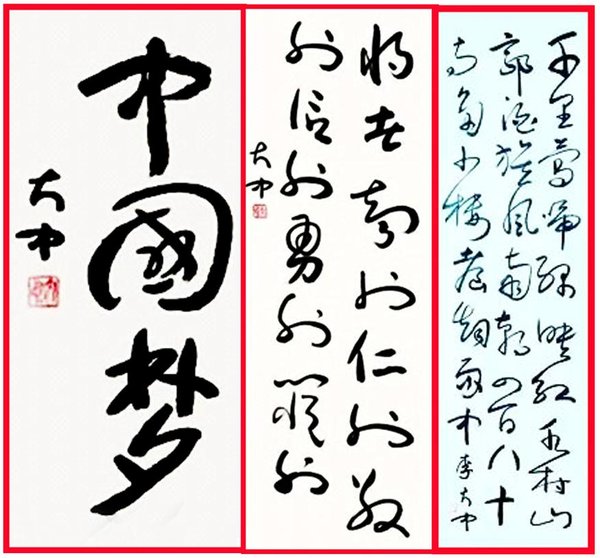 中國梦
大中
将者智也仁也敬
也信也勇也嚴也
大中
千里莺啼绿映红水村山
郭酒旗风南朝四百八十
寺多少楼台烟雨中李大中